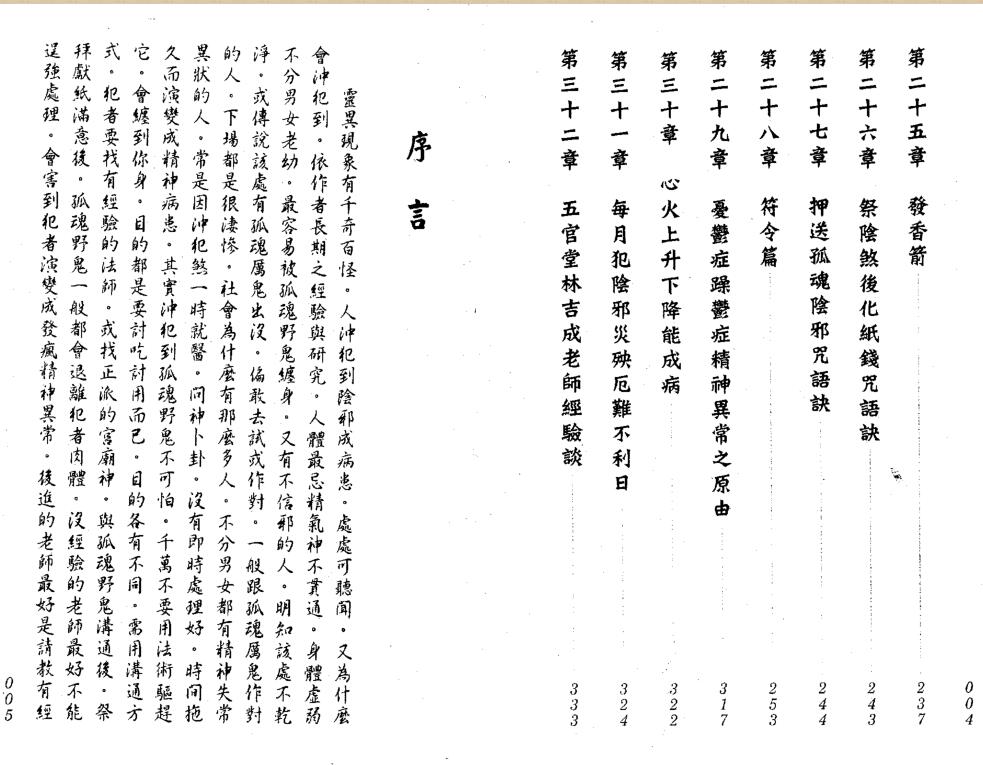 004
第二十五章　發香箭 237
第二十六章　祭陰煞後化紙錢咒語訣 243
第二十七章　押送孤魂陰邪咒語訣 244
第二十八章　符令篇 253
第二十九章　憂鬱症躁鬱症精神異常之原由 317
第三十章　心火上升下降能成病 322
第三十一章　每月犯陰邪災殃厄難不利日 324
第三十二章　五官堂林吉成老師經驗談 333
序言
靈異現象有千奇百怪。人沖犯到陰邪成病患。處處可聽聞。又為什麼
會沖犯到。依作者長期之經驗與研究。人體最忌精氣神不貫通。身體虛弱
不分男女老幼。最容易被孤魂野鬼纏身。又有不信邪的人。明知該處不乾
淨。或傳說該處有孤魂厲鬼出沒。偏敢去試或作對。一般跟孤魂厲鬼作對
的人。下場都是很淒慘。社會為什麼有那麼多人。不分男女都有精神失常
異狀的人。常是因沖犯煞一時就醫。問神卜卦。沒有即時處理好。時間拖
久而演變成精神病患。其實沖犯到孤魂野鬼不可怕。千萬不要用法術驅趕
它。會纏到你身。目的都是要討吃討用而已。目的各有不同。需用溝通方
式。犯者要找有經驗的法師。或找正派的宮廟神。與孤魂野鬼溝通後。祭
拜獻紙滿意後。孤魂野鬼一般都會退離犯者肉體。沒經驗的老師最好不能
逞強處理。會害到犯者演變成發瘋精神異常。後進的老師最好是請教有經
005